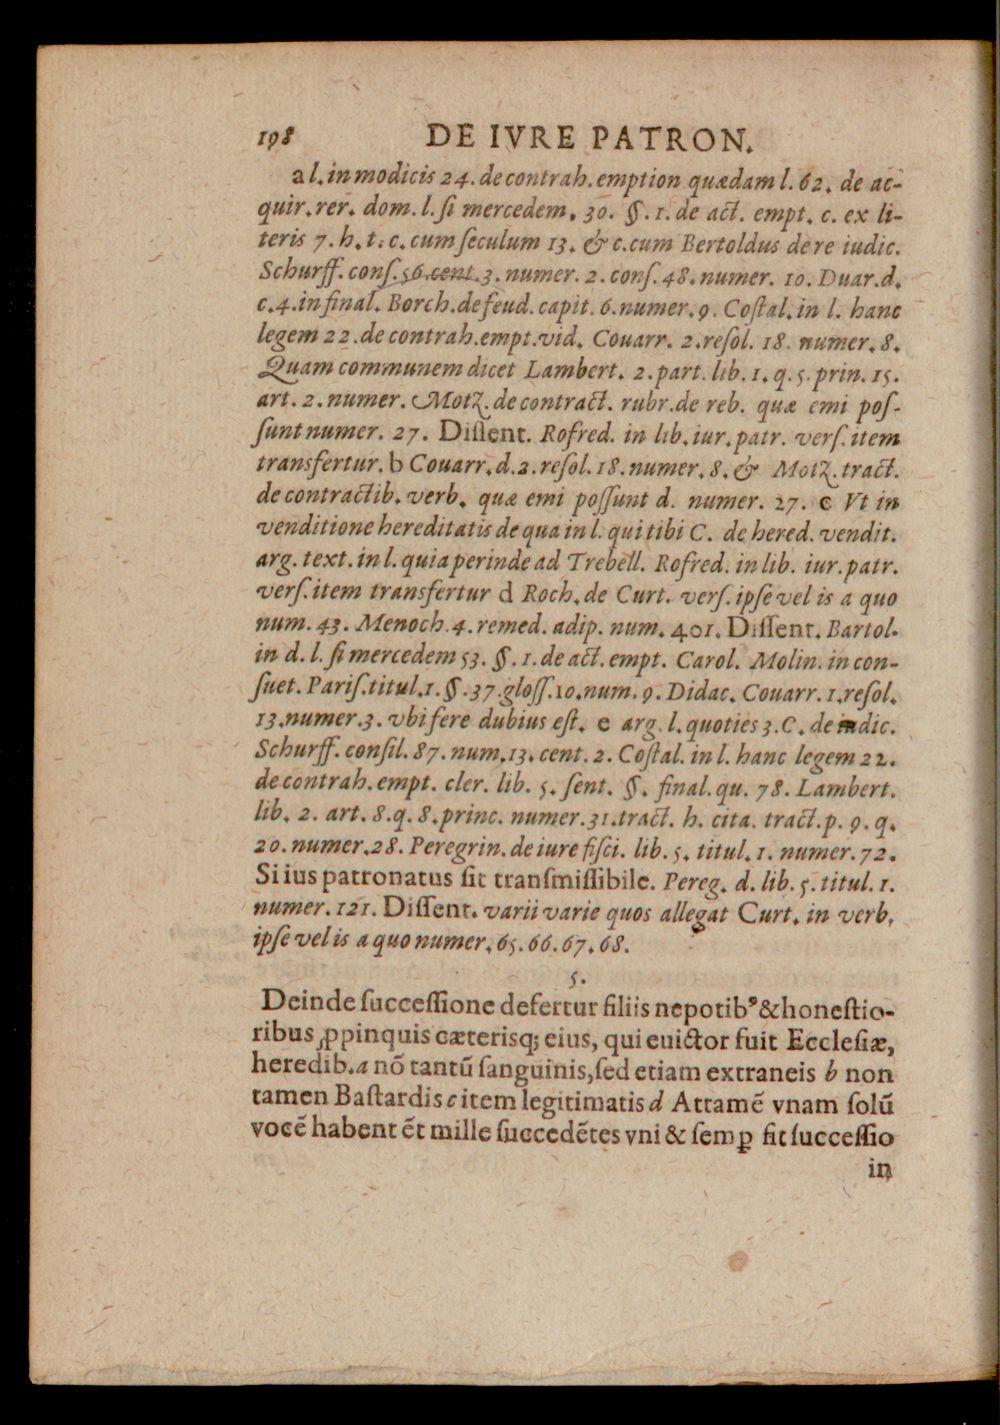 198 DE IVRE PATRON.
a l. in modicis 24. de contrah. emption quædam l. 62. de ac-
quir. rer. dom. l. ſi mercedem, 30. §. 1. de act. empt. c. ex li-
teris 7. h. t. c. cum ſeculum 13. & c. cum Bertoldus de re iudic.
Schurff. conſ. 56. cent. 3. numer. 2. conſ. 48. numer. 10. Duar. d.
c. 4. in final. Borch. de feud. capit. 6. numer. 9. Coſtal. in l. hanc
legem 22. de contrah. empt. vid. Couarr. 2. reſol. 18. numer. 8.
Quam communem dicet Lambert. 2. part. lib. 1. q. 5. prin. 15.
art. 2. numer. Motz. de contract. rubr. de reb. quæ emi poſ-
ſunt numer. 27. Diſſent. Rofred. in lib. iur. patr. verſ. item
transfertur. b Couarr. d. 2. reſol. 18. numer. 8. & Motz. tract.
de contractib. verb. quæ emi poſſunt d. numer. 27. c Vt in
venditione hereditatis de qua in l. qui tibi C. de hered. vendit.
arg. text. in l. quia perinde ad Trebell. Rofred. in lib. iur. patr.
verſ. item transfertur d Roch. de Curt. verſ. ipſe vel is a quo
num. 43. Menoch. 4. remed. adip. num. 401. Diſſent. Bartol.
in d. l. ſi mercedem 53. §. 1. de act. empt. Carol. Molin. in con-
ſuet. Pariſ. titul. 1. §. 37. gloſſ. 10. num. 9. Didac. Couarr. 1. reſol.
13. numer. 3. vbi fere dubius eſt. e arg. l. quoties 3. C. de iudic.
Schurff. conſil. 87. num. 13. cent. 2. Coſtal. in l. hanc legem 22.
de contrah. empt. cler. lib. 5. ſent. §. final. qu. 78. Lambert.
lib. 2. art. 8. q. 8. princ. numer. 31. tract. h. cita. tract. p. 9. q.
20. numer. 28. Peregrin. de iure fiſci. lib. 5. titul. 1. numer. 72.
Si ius patronatus ſit tranſmiſſibile. Pereg. d. lib. 5. titul. 1.
numer. 121. Diſſent. varii varie quos allegat Curt. in verb.
ipſe vel is a quo numer. 65. 66. 67. 68.
5.
Deinde ſucceſſione defertur filiis nepotibꝰ & honeſtio-
ribus ꝓpinquis cæterisq; eius, qui euictor fuit Eccleſiæ,
heredib. a nō tantū ſanguinis, ſed etiam extraneis b non
tamen Baſtardis c item legitimatis d Attamē vnam ſolū
vocē habent ēt mille ſuccedētes vni & ſemꝑ fit ſucceſſio
in